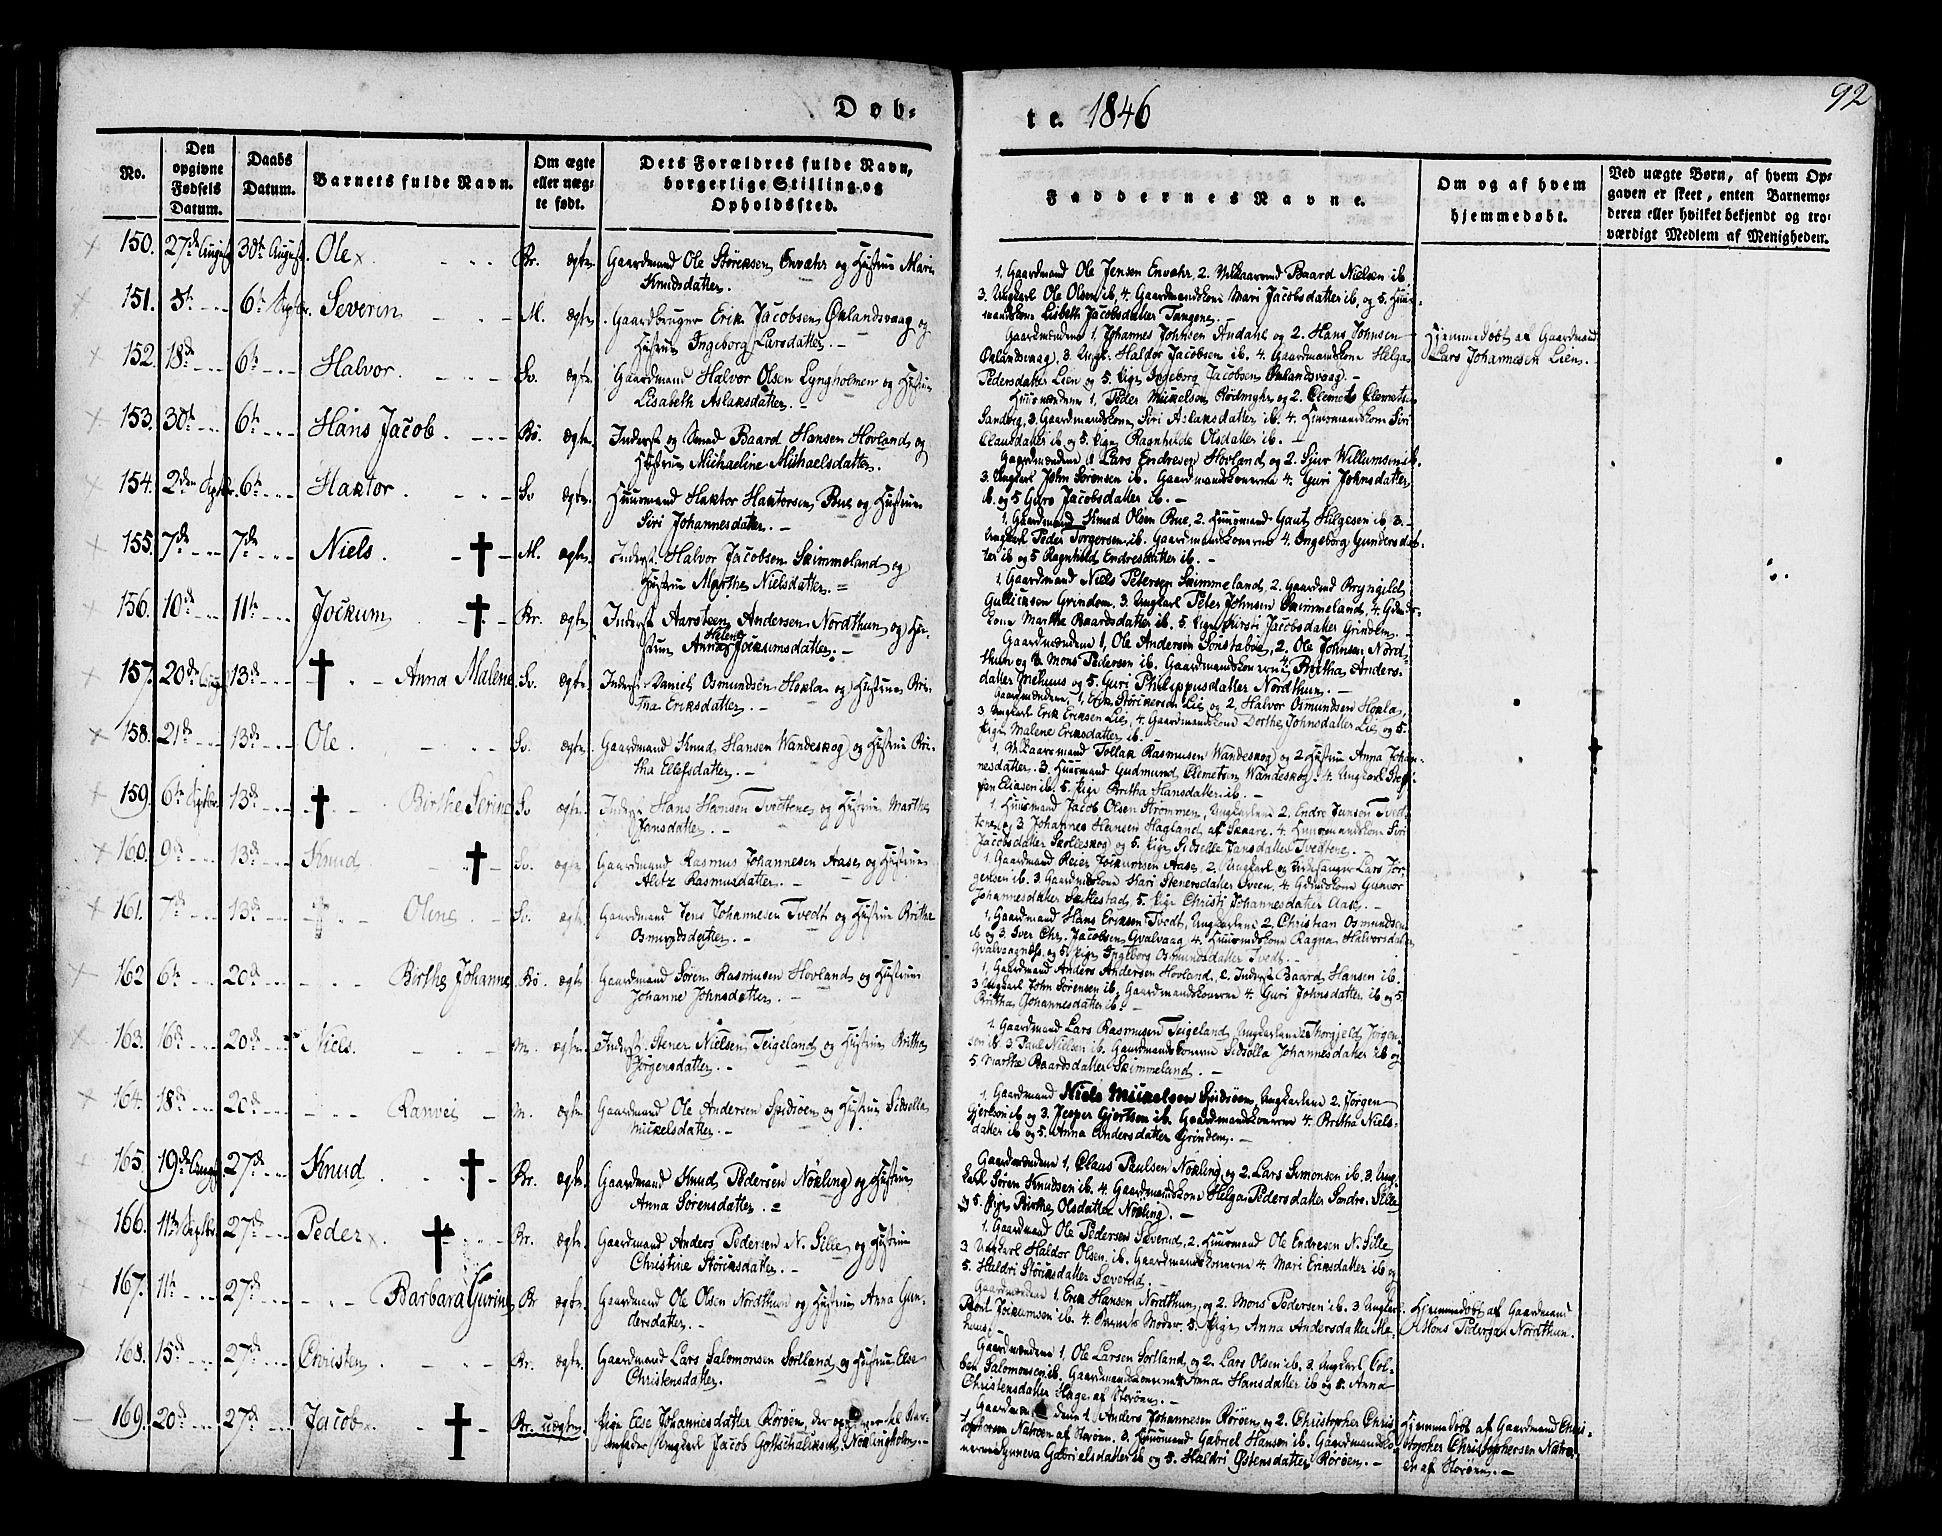 Døb-
te. 1846
92
No.
Den opgivne Fødsels Datum.
Daabs Datum.
Barnets fulde Navn.
Om ægte eller uægte født.
Dets Forældres fulde Navn, borgerlige Stilling og Opholdssted.
Faddernes Navne.
Om og af hvem hjemmedøbt.
Ved uægte Børn, af hvem Opgaven er skeet, enten Barnemoderen eller hvilket bekjendt og troværdigt Medlem af Menigheden.
150. 27de August 30te August. Ole Br. ægte. Gaardmand Ole Størksen Envæhr og Hustrue Mari
Knudsdatter.
1. Gaardmand Ole Jensen Envæhr, 2. Baard Nielsen ib.
3. Ungkarl Ole Olsen ib, 4. Gaardmandskone Mari Jacobsdatter ib, og 5. Huus-
mandskone Lisbeth Jacobsdatter Tangene.
151. 6te Septbr. Severin M. ægte. Gaardbruger Erik Jacobsen Øklandsvaag og
Hustrue Ingeborg Larsdatter.
Gaardmændene 1. Johannes Johnsen Aridahl og 2. Hans Johnsen
Øklandsvaag, 3. Ungk. Haldor Jacobsen ib. 4. Gaardmandskone Helga
Pedersdatter Lien og 5. Pige Ingeborg Jacobsen Øklandsvaag.
Hjemmedøbt af Gaardmand
Lars Johannesen Lien.
152. 18de 6te Halvor. Sv. ægte. Gaardmand Halvor Olsen Lyngholmen og Hustrue
Lisabeth Aslaksdatter.
Huusmændene 1. Peder Mickelsen Rødmyhr og 2. Clemet Clemets.
Sandvig, 3. Gaardmandskone Siri Aslaksdatter ib. 4. Huusmandskone Siri
Clausdatter ib og 5. Pige Ragnhilde Olsdatter ib.
153. 30te 6te Hans Jacob. Bø. ægte. Inderst og Smed Baard Hansen Hovland og
Hustrue Michaeline Michaelsdatter.
Gaardmændene 1 Lars Endresen Hovland og 2. Sjur Willumsen ib.
3. Ungkarl John Sørensen ib. Gaardmandskonerne 4. Guri Johnsdatter
ib og 5 Guro Jacobsdatter ib.
154. 2den Septbr. 6te Haktor. Sv ægte. Huusmand Haktor Haktorsen Bue og Hustrue
Siri Johannesdatter.
1. Gaardmand Knud Olsen Bue, 2. Huusmand Gaut Helgesen ib 3.
Ungkarl Peder Torgersen ib. Gaardmandskonerne 4. Ingeborg Gundersdat-
ter ib og 5 Ragnhild Endresdatter ib.
155. 7de 7de Niels. M. ægte. Inderst Halvor Jacobsen Skimmeland og
Hustrue Marthe Nielsdatter.
1. Gaardmand Niels Petersen Skimmeland, 2. Gaardmd Bryngild
Gullicksen Grindem. 3. Ungkarl Peter Johnsen Skimmeland, 4. Gdmds-
kone Martha Baardsdatter ib. 5. Pige Kirsti Jacobsdatter Grindem.
156. 10de 11te Jockum Br. ægte. Inderst Aarsteen Andersen Nordthun og Hu-
strue Anna Helene Jockumsdatter.
Gaardmændene 1, Ole Andersen Sønstabøe, 2. Ole Johnsen Nord-
thun og 3. Mons Pedersen ib. Gaardmandskonerne 4. Britha Anders-
datter Mehuus og 5. Guri Philippusdatter Nordthun.
157. 20de Aug. 13de Anna Malene. Sv. ægte. Inderst Daniel Osmundsen Hoxla og Hustrue Bri-
tha Eriksdatter.
Gaardmændene, 1, Erik Størkersen Lie og 2, Halvor Osmundsen Hoxla,
3 Ungkarl Erik Eriksen Lie, 4. Gaardmandskone Dorthe Johnsdatter Lie og 5.
Pige Malene Eriksdatter ib.
158. 21de 13de Ole. Sv. ægte. Gaardmand Knud Hansen Wandeskog og Hustrue Bri-
tha Ellefsdatter.
1. Tollak Rasmusen Wandeskog og 2 Hustrue Anna Johan-
nesdatter. 3. Huusmand Gudmund Clemetsen Wandeskog. 4. Ungkarl Stef-
fen Eliasen ib. 5. Pige Britha Hansdatter ib.
159. 6te Septbr. 13de Birthe Serine Sv ægte. Inderst Hans Hansen Tvedtene og Hustrue Marthe
Jansdatter.
1. Huusmand Jacob Olsen Strømmen, Ungkarlene 2. Endre Jansen Tved-
tene og 3 Johannes Hansen Hagland af Skaare. 4. Huusmandskone Siri
Jacobsdatter Skolleskog og 5. Pige Sidselle Jansdatter Tvedtene.
160. 9de 13de Knud Sv. ægte. Gaardmand Rasmus Johannesen Aase og Hustrue
Alitz Rasmusdatter.
1. Gaardmand Reier Jockumsen Aase, 2. Ungkarl og Kirkesanger Lars Jør-
gensen ib. 3 Gaardmandskone Kari Stenersdatter Sveen. 4. Gdmdskone Gunvor
Johannesdatter Sættestad, 5. Pige Christi Johannesdatter Aase.
161. 7de 13de Oline Sv. ægte. Gaardmand Jens Johannesen Tvedt og Hustrue Britha
Osmundsdatter.
1. Gaardmand Hans Eriksen Tvedt, Ungkarlene 2. Christian Osmundsen
ib og 3. Iver Chr. Jacobsen Qvalvaag 4. Huusmdskone Ragna Halvorsdatter
Qvalvaagnæs og 5. Pige Ingeborg Osmundsdatter Tvedt.
162 6te 20de Birthe Johanne Bø ægte. Gaardmand Søren Rasmusen Hovland og Hustrue
Johanne Johnsdatter.
1. Gaardmand Anders Andersen Hovland, 2. Inderst Baard Hansen ib.
3 Ungkarl John Sørensen ib. Gaardmandskonerne 4. Guri Johnsdatter ib og 5.
Britha Johannesdatter ib.
163. 16de 20de Niels. M. ægte. Inderst Stener Nielsen Teigeland og Hustrue Britha
Børgensdatter.
1. Gaardmand Lars Rasmusen Teigeland, Ungkarlene 2 Thorgjeld Jørgen-
sen ib 3 Paul Nielsen ib. Gaardmandskonerne Sidsella Johannesdatter ib og
5. Marthe Baardsdatter Skimmeland.
164. 18de 20de Ranvei M. ægte. Gaardmand Ole Andersen Spidsøen og Hustrue Sidsella
Mickelsdatter.
1. Gaardmand Niels Mickelsen Spidsøen, Ungkarlene 2. Jørgen
Gjertsen ib og 3. Jesper Gjertsen ib. Gaardmandskonerne 4. Britha Niels-
datter ib og 5. Anna Andersdatter Grindem.
165. 19de August 27de Knud Br. ægte. Gaardmand Knud Pedersen Nøkling og Hustrue
Anna Sørensdatter.
Gaardmændene 1, Claus Paulsen Nøkling og 2. Lars Simonsen ib. 3. Ung-
karl Søren Knudsen ib. 4. Gaardmandskone Helga Pedersdatter Søndre Sille
og 5. Pige Birthe Olsdatter Nøkling.
166. 11te Septbr. 27de Peder Br. ægte. Gaardmand Anders Pedersen N. Sille og Hustrue
Christine Størksdatter.
1. Gaardmand Ole Pedersen Sæverud, 2. Huusmand Ole Endresen N. Sille
3 Ungkarl Haldor Olsen ib. Gaardmandskonerne 4. Mari Eriksdatter ib og
5. Haldri Størksdatter Sæverud.
167. 11te 27de Barbara Gurine Br ægte. Gaardmand Ole Olsen Nordthun og Hustrue Anna Gun-
dersdatter.
Gaardmændene 1. Erik Hansen Nordthun, og 2. Mons Pedersen ib. 3 Ungkarl
Bent Jockumsen ib. 4. Barnets Moder. 5. Pige Anna Andersdatter Me-
huus.
Hjemmedøbt af Gaardmand
Mons Pedersen Nordthun.
168. 15de 27de Christen Br. ægte. Gaardmand Lars Salomonsen Sortland og Hustrue Else
Christensdatter.
Gaardmændene 1. Ole Larsen Sortland og 2. Lars Olsen ib. 3. Ungkarl Col-
ben Salomonsen ib. Gaardmandskonerne 4 Anna Hansdatter ib og 5. Anna
Christensdatter Hage af Storøen.
169. 20de 27de Jacob Br. uægte. Pige Else Johannesdatter Rørøen, der opgiver til Bar-
nefader Ungkarl Jacob Gottschalksen Nøklingholm.
Gaardmændene 1. Anders Johannesen Rørøen og 2. Christopher Chris-
tophersen Natøen af Storøen. 3. Huusmand Gabriel Hansen ib. Gaardmandsko-
nerne Synneva Gabrielsdatter ib og 5. Haldri Østensdatter Rørøen.
Hjemmedøbt af Gaardmand Chris-
topher Christophersen Natø-
en af Storøen.